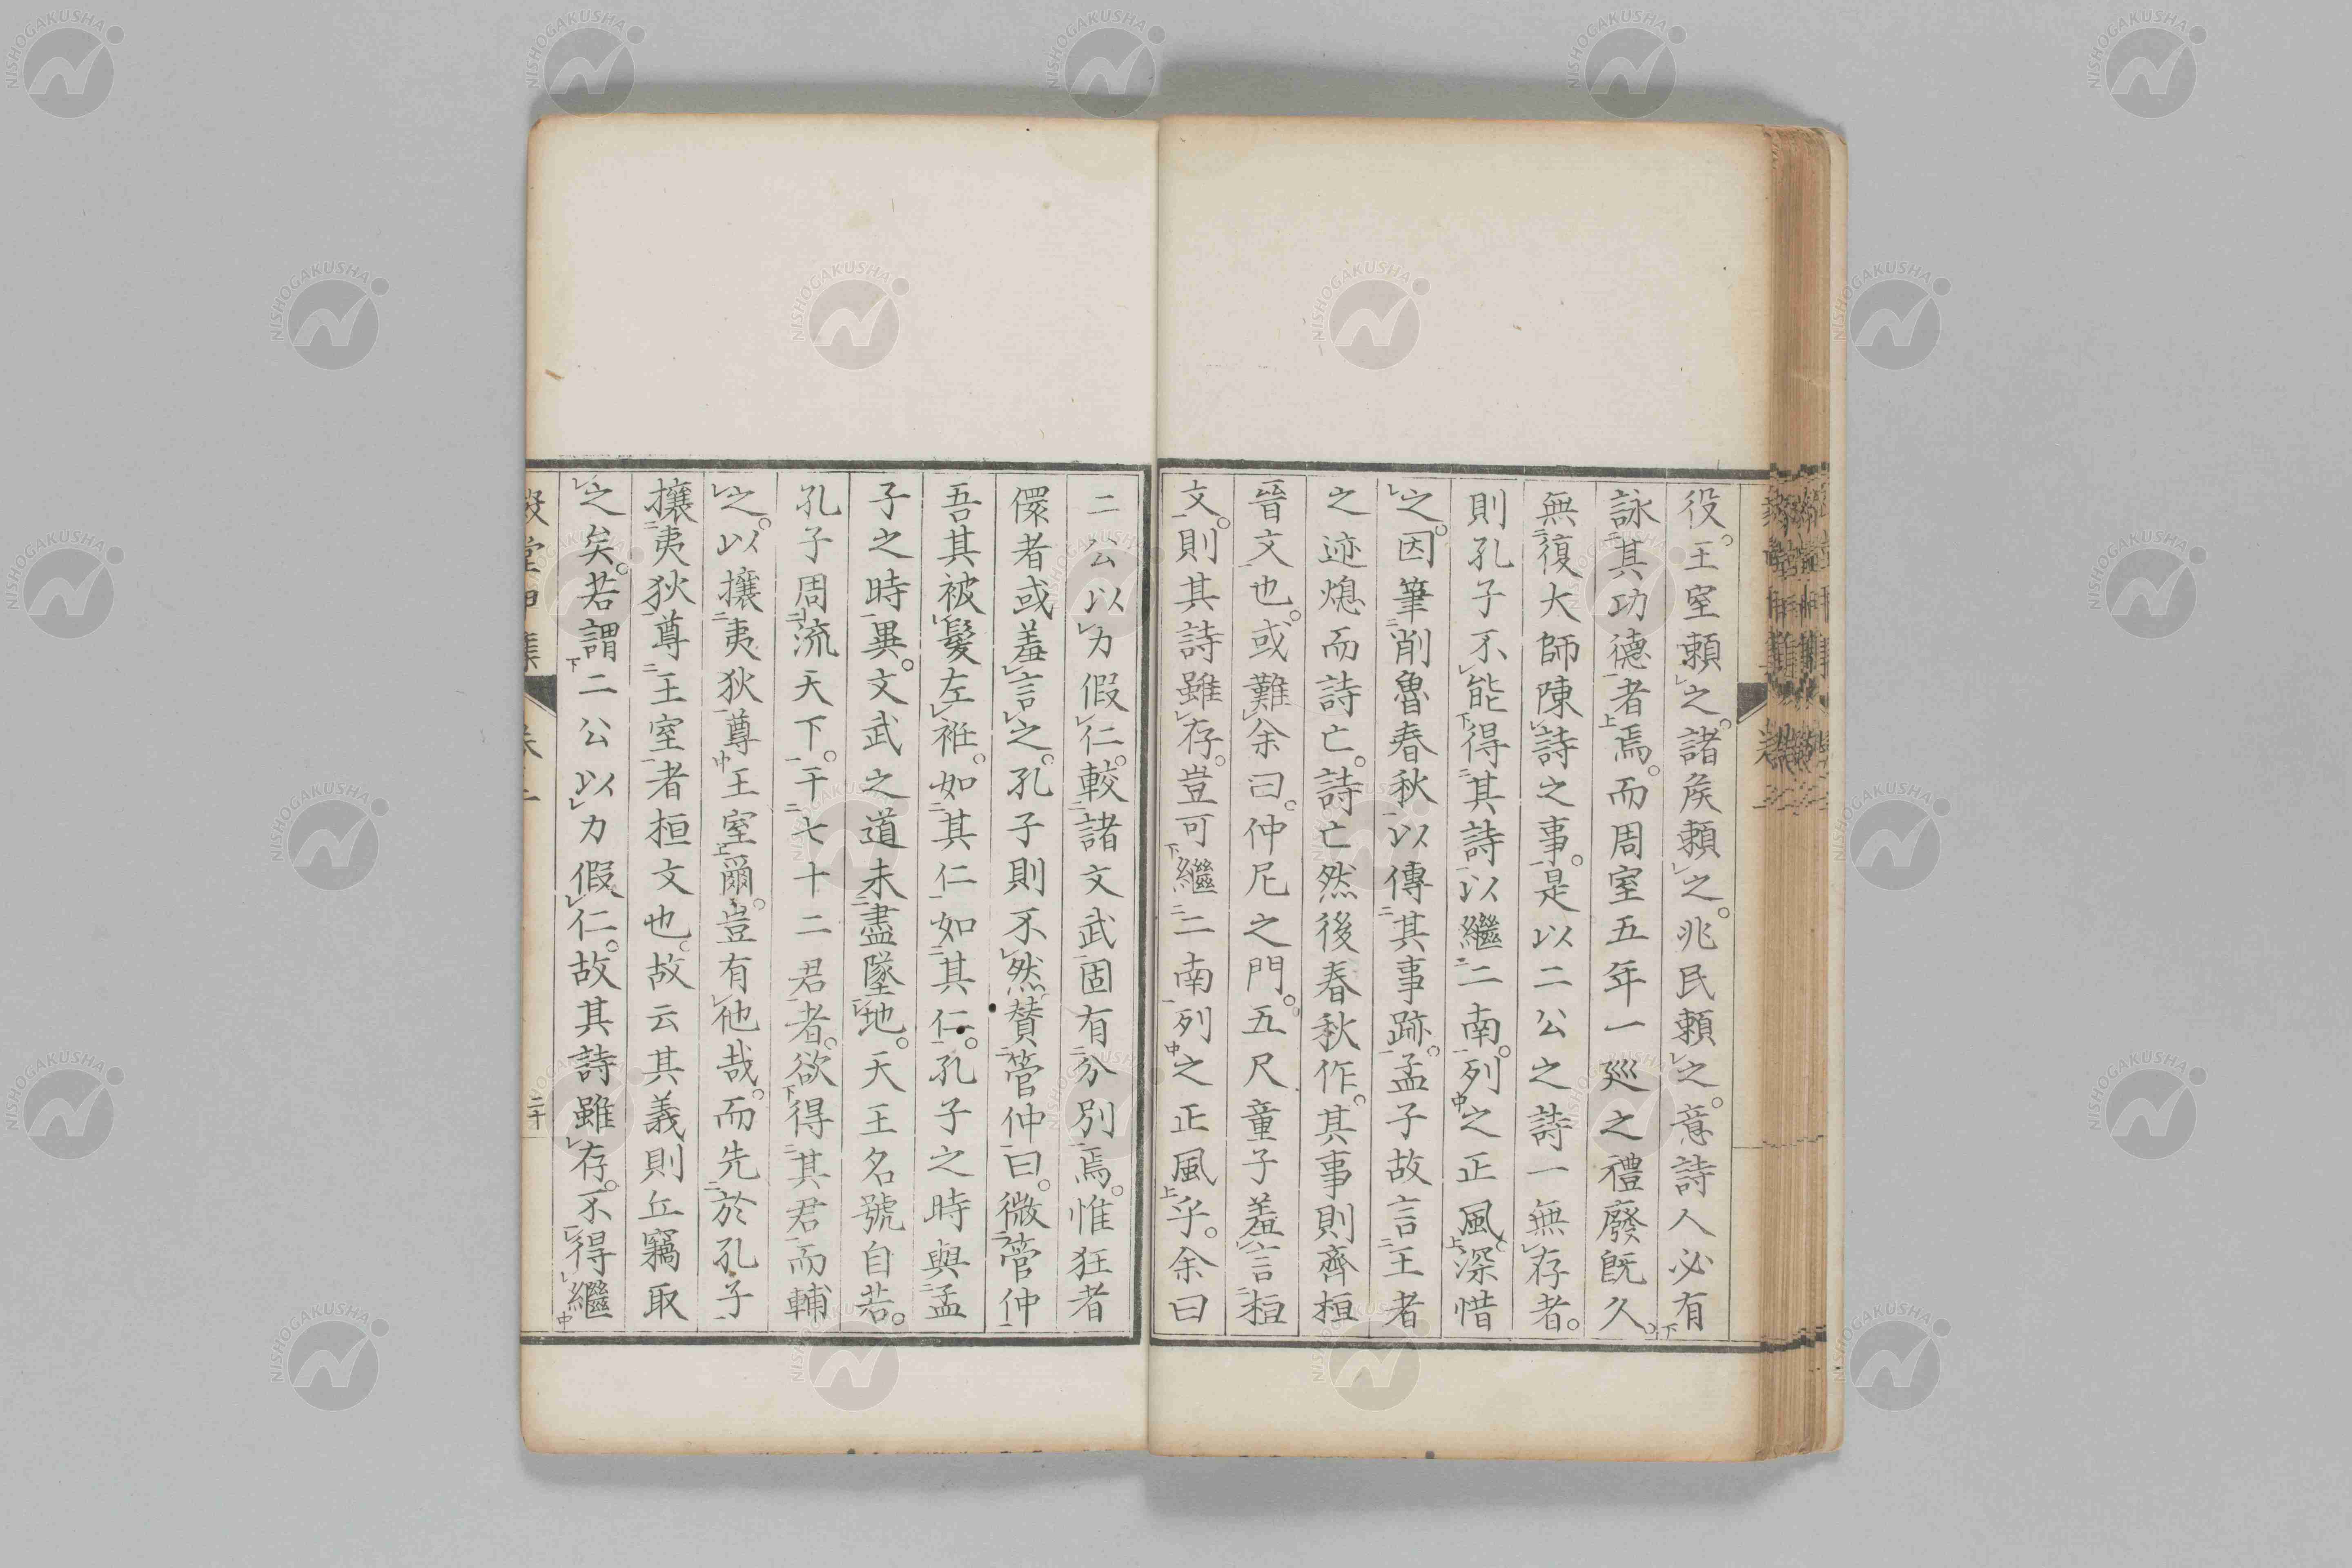 役。王室頼之。諸矦頼之。兆民頼之。意詩人必有
詠其功德者焉。而周室五年一巡之禮廢旣久。
無復大師陳詩之事。是以二公之詩一無存者。
則孔子不能得其詩以繼二南。列之正風。深惜
之。因筆削魯春秋以傳其事跡。孟子故言王者
之迹熄而詩亡。詩亡然後春秋作。其事則齊桓
晉文也。或難余曰。仲尼之門。五尺童子羞言桓
文。則其詩雖存。豈可繼二南列之正風乎。余曰
二公以力假仁。較諸文武固有分別焉。惟狂者
儇者或羞言之。孔子則不然賛管仲曰。微管仲
吾其被髮左袵。如其仁如其仁。孔子之時與孟
子之時異。文武之道未盡墜地。天王名號自若。
孔子周流天下。干七十二君者。欲得其君而輔
之。以攘夷狄尊王室爾。豈有他哉。而先於孔子
攘夷狄尊王室者桓文也。故云其義則丘竊取
之矣。若謂二公以力假仁。故其詩雖存。不得繼
NISHOGAKUSHA